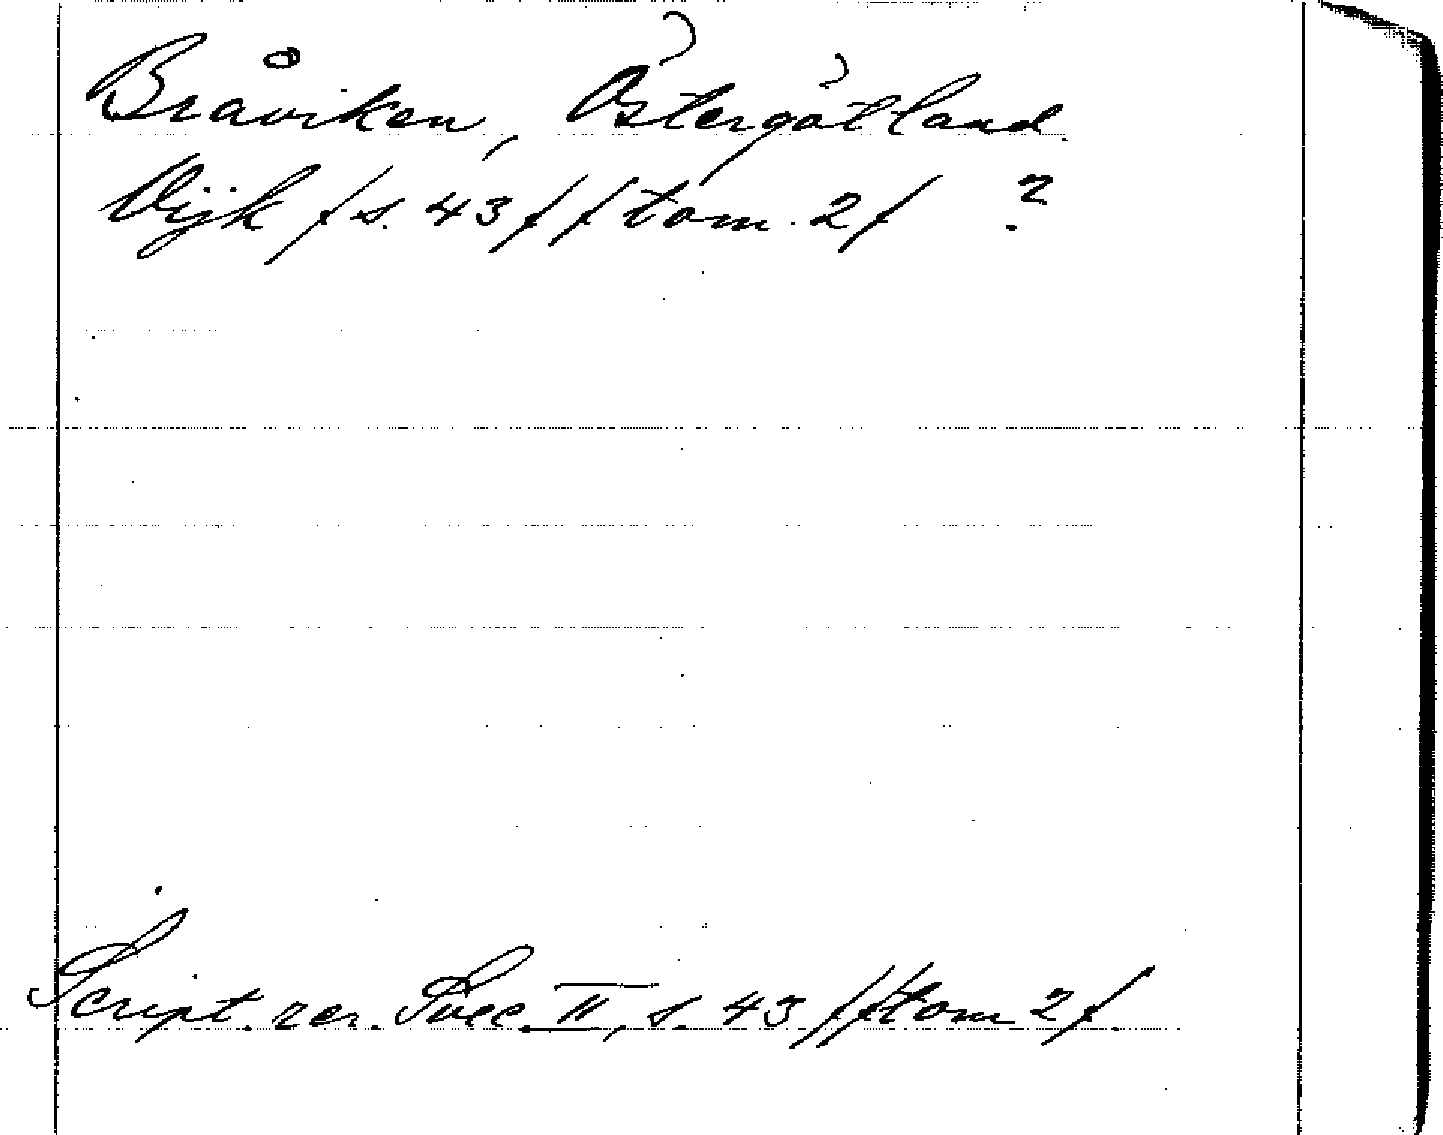 Bråviken, Östergötland.
Vijk /s. 43/ /tom. 2/ ?
Script. rer. Svec. II, s. 43 / /tom 2/.